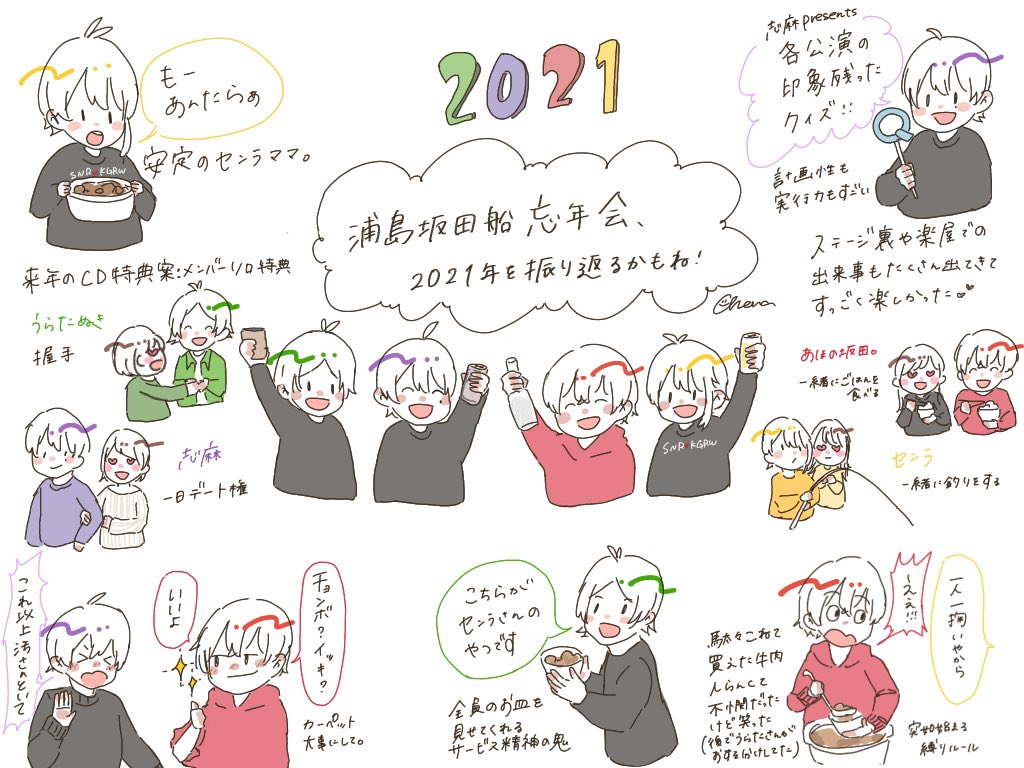 2021
もー
あんたらぁ
安定のセンラママ。
SNR♥KGRW
志麻presents
各公演の
印象残った
クイズ!!
計画性も
実行力もすごい
ステージ裏や楽屋での
出来事もたくさん出てきて
すっごく楽しかった
浦島坂田船忘年会、
2021年を振り返るかもね!
来年のCD特典案:メンバーソロ特典
うらたぬき
握手
志麻
一日デート権
あほの坂田。
一緒にごはんを
食べる
センラ
一緒に釣りをする
SNR♥KGRW
これ以上汚さんといて
いいよ
チョンボ?イッキ?
カーペット
大事にして。
こちらが
センラさんの
やつです
全員のお皿を
見せてくれる
サービス精神の鬼
駄々こねて
買えた牛肉
入らんくて
不憫だった
けど笑った
(後でうらたさんが
おすそ分けしてた)
ーええ!!!
一人一掬いやから
突如始まる
縛りルール